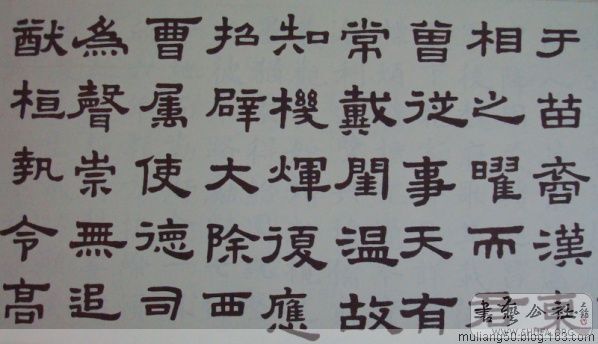 于苗裔漢東
相之曜而
曾從事天有
常戴閨温故
知機煇復應
招辟大除西
曹属使德司
為聲崇無追
猷桓執令高
書藝公社
muliang50.blog.163.com